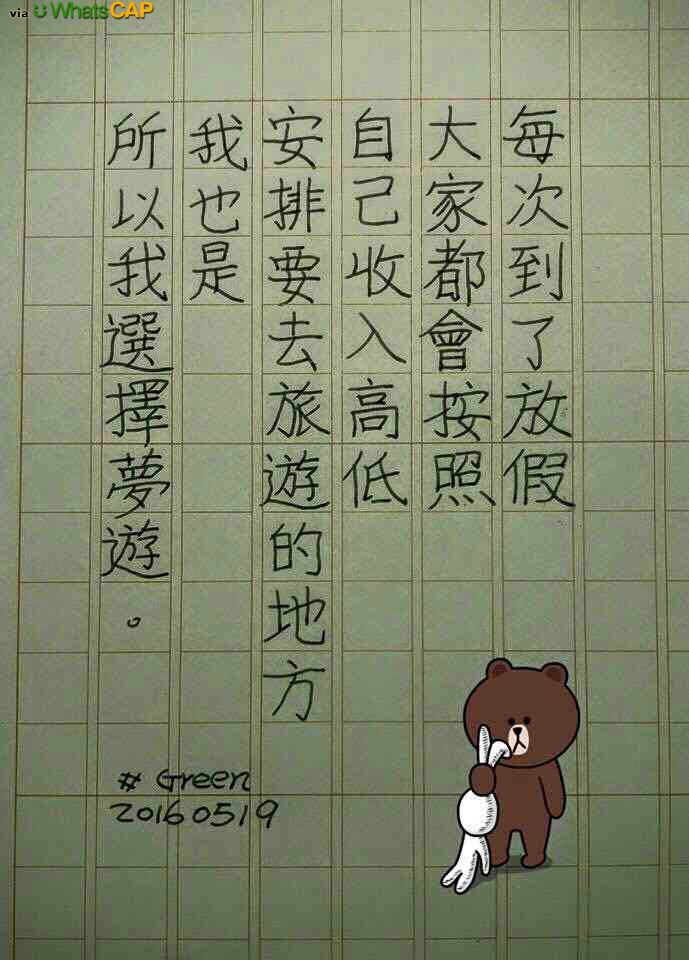 via WhatsCAP
每次到了放假
大家都會按照
自己收入高低
安排要去旅遊的地方
我也是
所以我選擇夢遊。
# Green
20160519